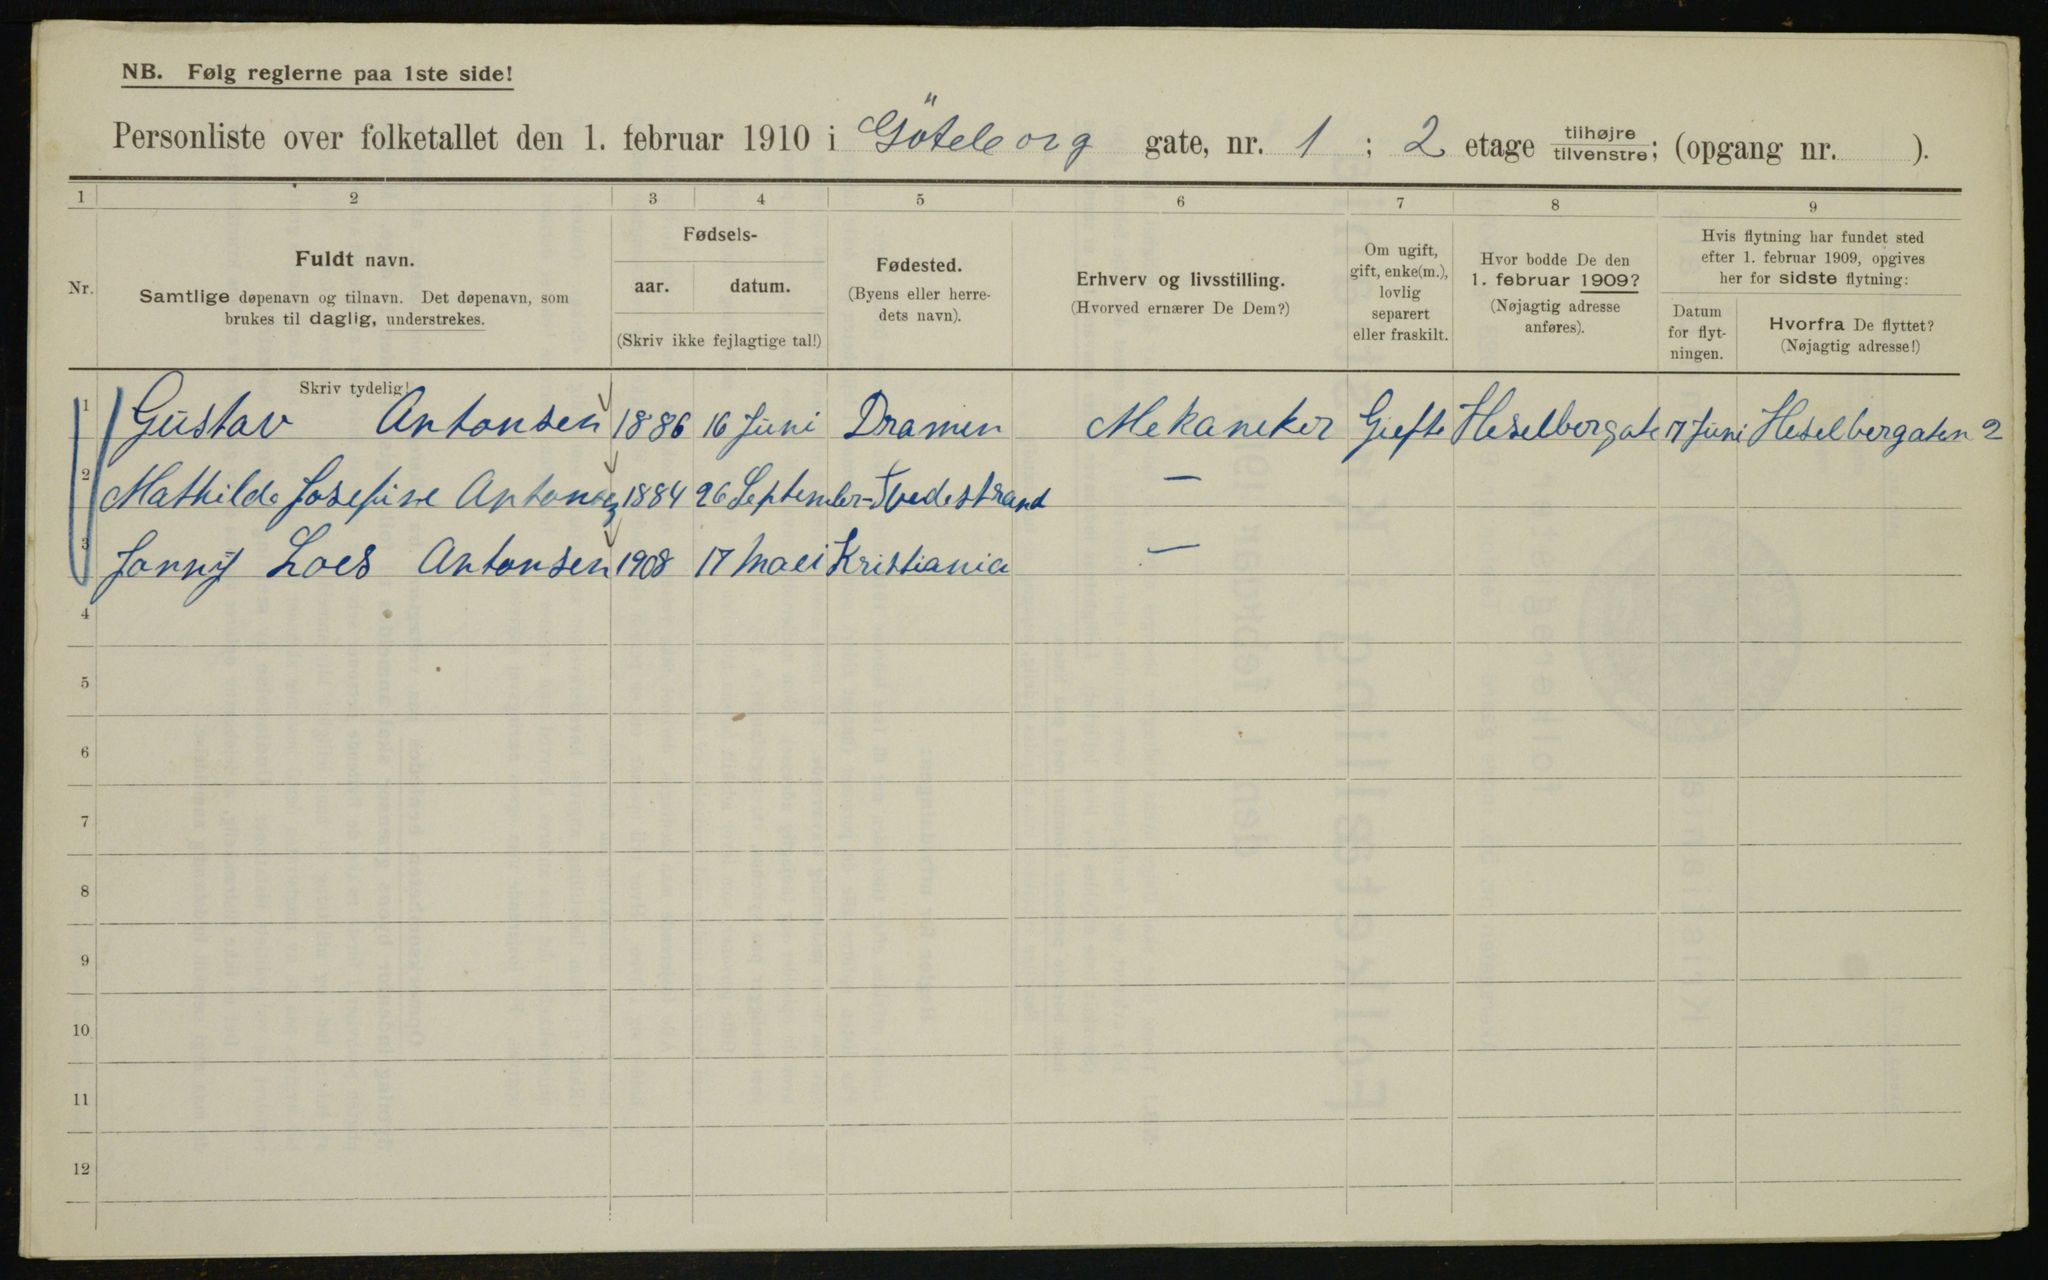 NB. Følg reglerne paa 1ste side!
Personliste over folketallet den 1. februar 1910 i Göteborg gate, nr. 1 ; 2 etage tilhøjre tilvenstre; (opgang nr. ).
1 2 3 4 5 6 7 8 9
Nr.
Fuldt navn.
Samtlige døpenavn og tilnavn. Det døpenavn, som
brukes til daglig, understrekes.
Skriv tydelig!
Fødsels-
aar. datum.
(Skriv ikke fejlagtige tal!)
Fødested.
(Byens eller herre-
dets navn).
Erhverv og livsstilling.
(Hvorved ernærer De Dem?)
Om ugift,
gift, enke(m.),
lovlig
separert
eller fraskilt.
Hvor bodde De den
1. februar 1909?
(Nøjagtig adresse
anføres).
Hvis flytning har fundet sted
efter 1. februar 1909, opgives
her for sidste flytning:
Datum
for flyt-
ningen.
Hvorfra De flyttet?
(Nøjagtig adresse!)
1 Gustav Antonsen 1886 16 Juni Dramen Mekaneker Giefte Heselbergate 17 Juni Heselbergaten 2
2 Mathilde Josefine Antonsen 1884 26 September Tvedestrand —
3 Antonsen 1908 17 Maei Kristiania —
4
5
6
7
8
9
10
11
12